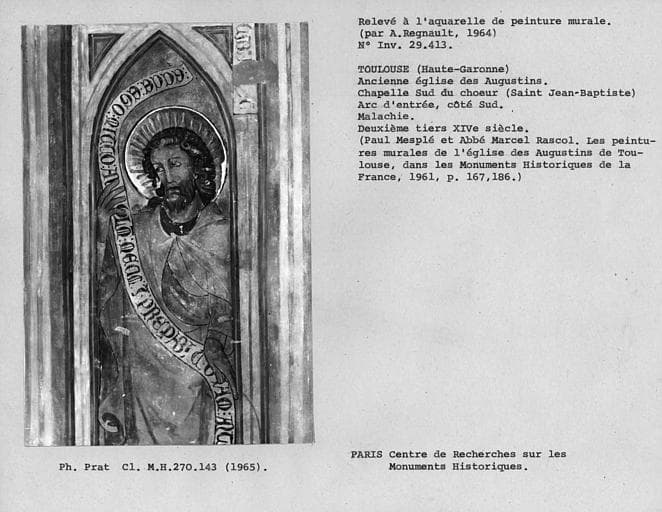 Relevé à l'aquarelle de peinture murale.
(par A.Regnault, 1964)
N° Inv. 29.413.
TOULOUSE (Haute-Garonne)
Ancienne église des Augustins.
Chapelle Sud du choeur (Saint Jean-Baptiste)
Arc d'entrée, côté Sud.
Malachie.
Deuxième tiers XIVe siècle.
(Paul Mesplé et Abbé Marcel Rascol. Les peintu-
res murales de l'église des Augustins de Tou-
louse, dans les Monuments Historiques de la
France, 1961, p. 167,186.)
PARIS Centre de Recherches sur les
Monuments Historiques.
Ph. Prat Cl. M.H.270.143 (1965).